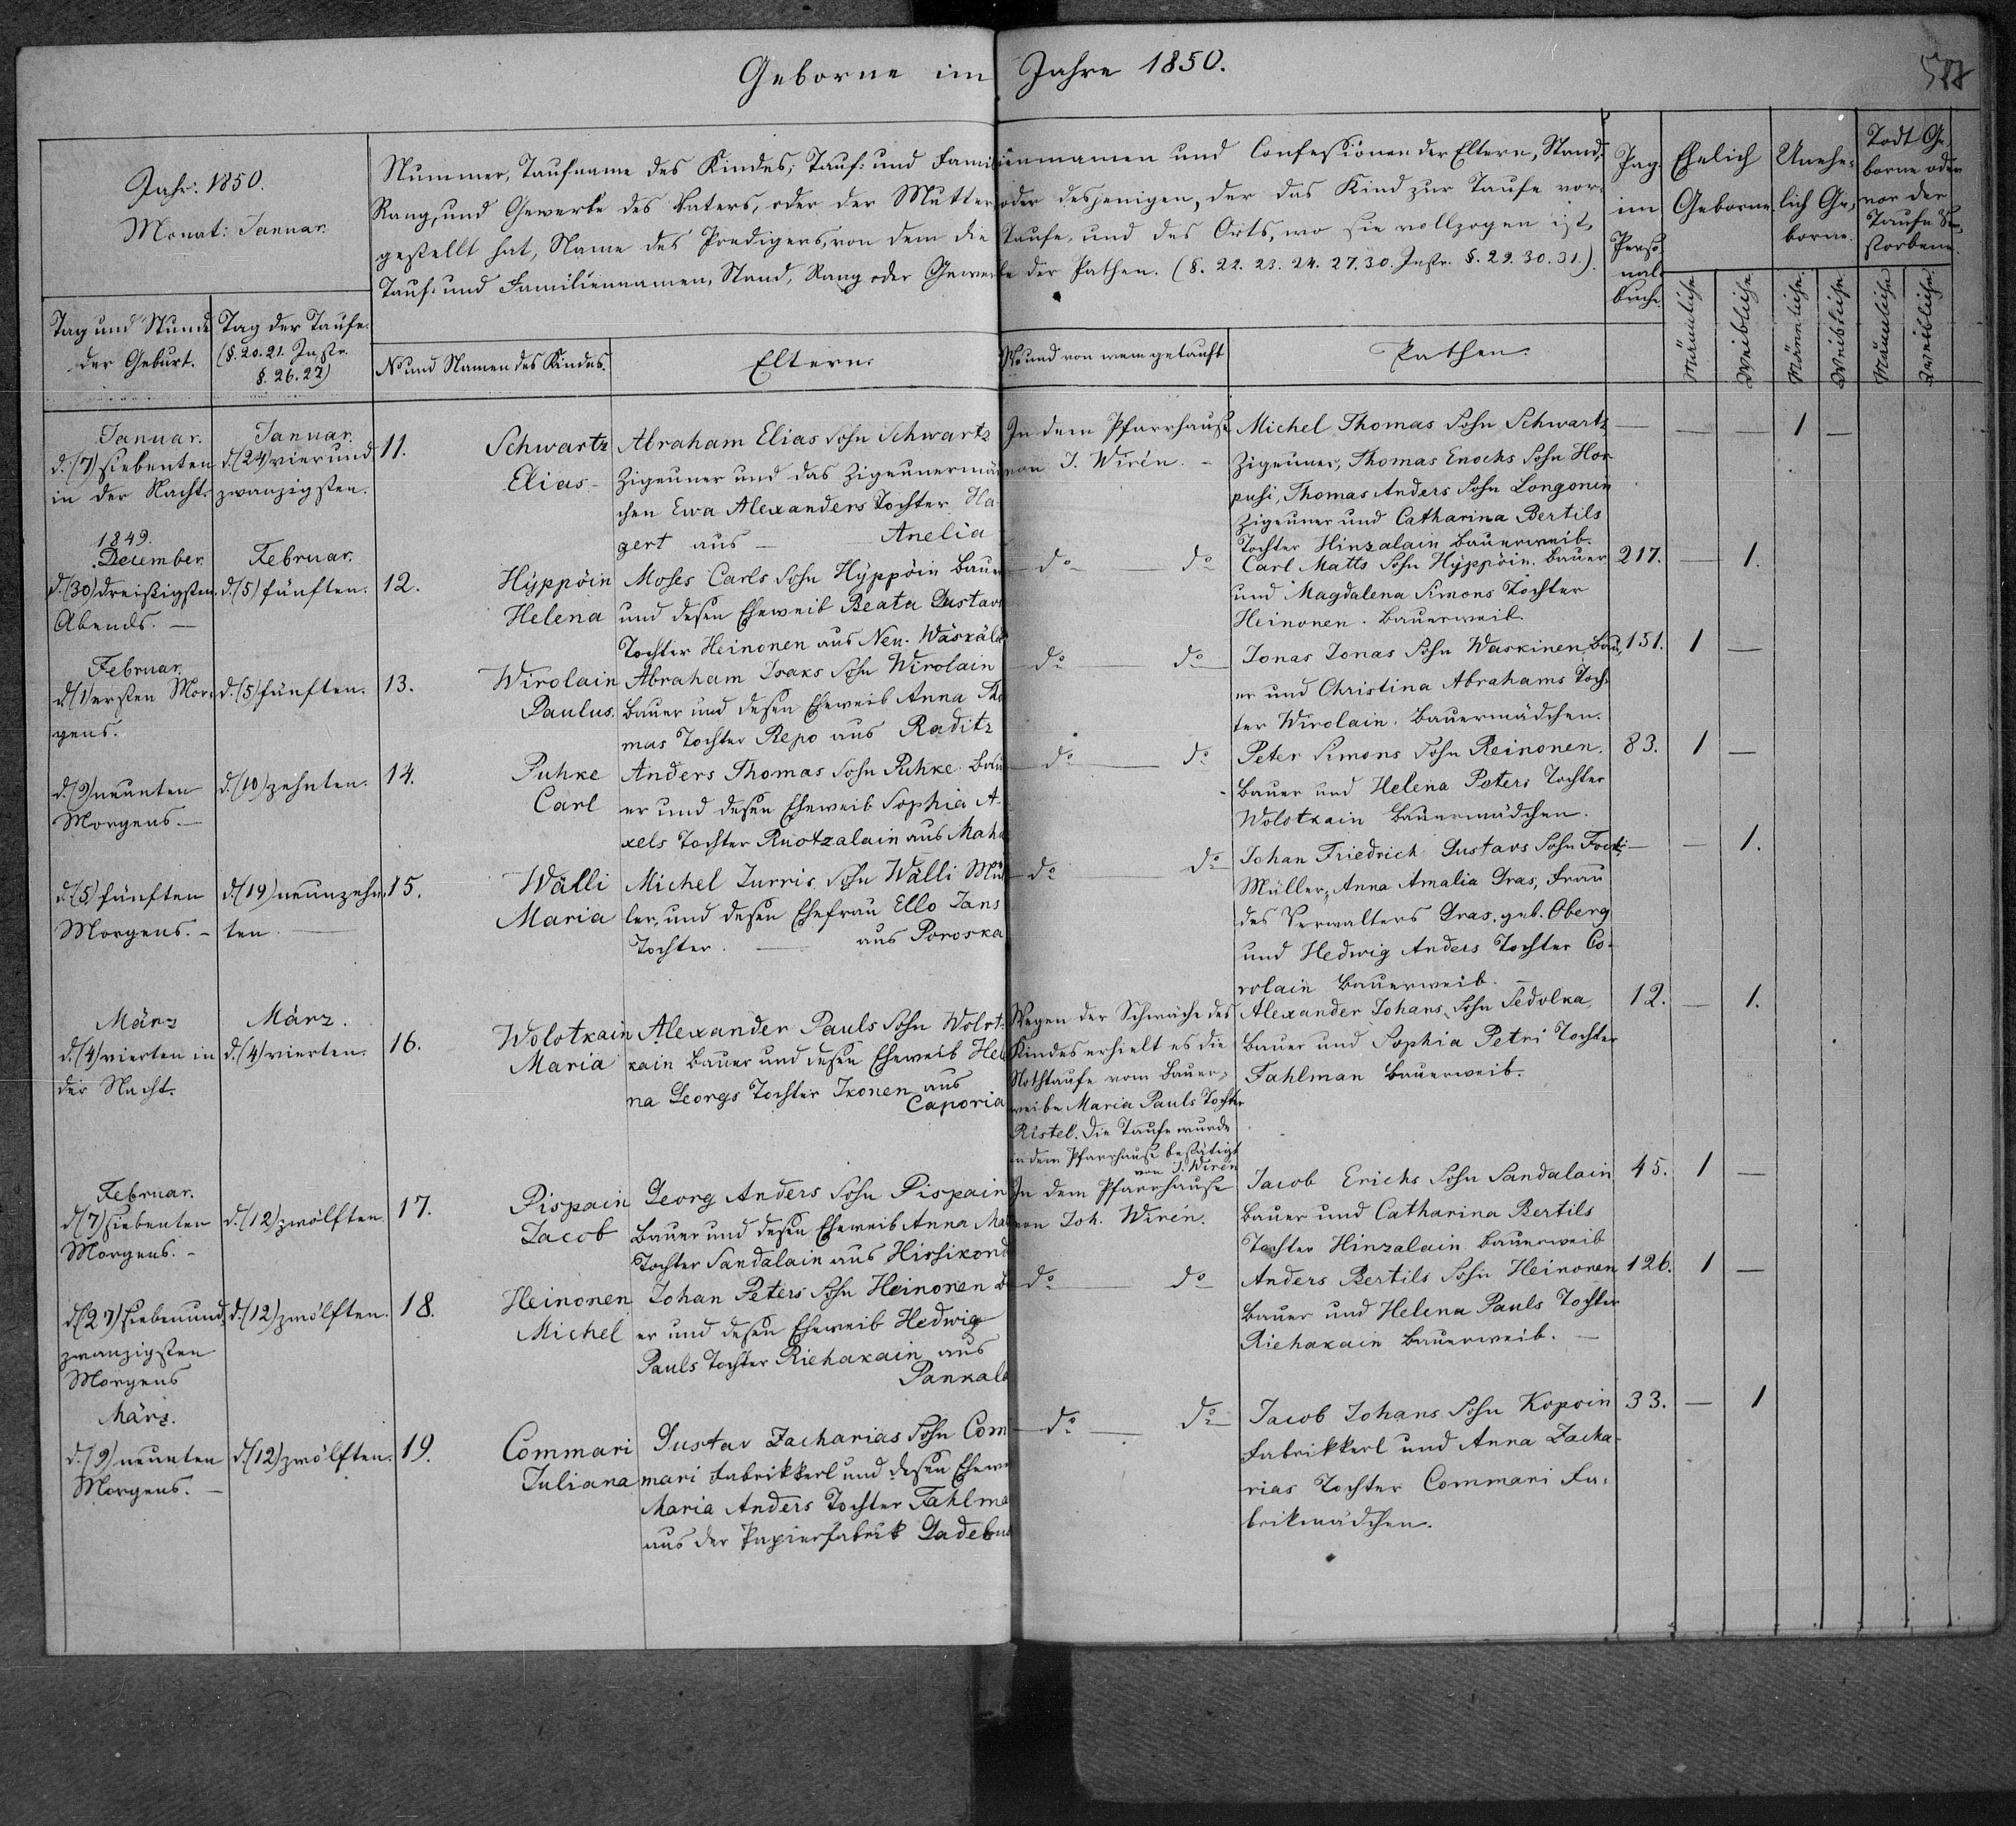 Geborne im Jahre 1850.
Jahr: 1850.
Monat: Januar.
Nummer, Taufname des Kindes; Tauf- und Familiennamen und Confessionen der Eltern, Stand,
Rang, und Gewerbe des Vaters, oder der Mutter oder desjenigen, der das Kind zur Taufe vor-
gestellt hat, Name des Predigers, von dem die Taufe, und des Orts, wo sie vollzogen ist,
Tauf- und Familiennamen, Stand, Rang oder Gewerbe der Pathen. (§. 22. 23. 24. 27. 30. Instr. §. 29. 30. 31.)
Pag.
im
Perso-
nal-
buche.
Ehelich
Geborne.
Unehe-
lich Ge-
borne.
Todt Ge-
borne oder
vor der
Taufe Ver-
storbene.
Tag und Stunde
der Geburt.
Tag der Taufe.
(§. 20. 21. Instr.
§. 26. 27)
No und Namen des Kindes.
Eltern.
Wo und von wem getauft
Pathen.
Männliche
Weibliche
Männliche
Weibliche
Männliche
Weibliche
Januar.
d. (7) siebenten
in der Nacht.
Januar.
d. (24) vierund
zwanzigsten.
11.
Schwartz
Elias
Abraham Elias Sohn Schwartz
Zigeuner und das Zigeunermäd
chen Ewa Alexanders Tochter Ha
gert aus Anelia
In dem Pfarrhause
von J. Wirén.
Michel Thomas Sohn Schwartz
Zigeuner, Thomas Enochs Sohn Hor
pusi, Thomas Anders Sohn Longonen
Zigeuner und Catharina Bertils
Tochter Hinzalain Bauerweib.
— — 1 —
1849.
December.
d. (30) dreißigsten
Abends. —
Februar.
d. (5) fünften.
12.
Hyppöin
Helena
Moses Carls Sohn Hyppöin Bauer
und dessen Eheweib Beata Gustavs
Tochter Heinonen aus Neu-Wäskälä
do — do
Carl Matts Sohn Hyppöin. Bauer
und Magdalena Simons Tochter
Heinonen. Bauerweib.
217. — 1.
Februar.
d. (1) ersten Mor-
gens.
d. (5) fünften.
13.
Wirolain
Paulus.
Abraham Isaks Sohn Wirolain
Bauer und dessen Eheweib Anna Tho
mas Tochter Repo aus Raditz
do — do
Jonas Jonas Sohn Waskinen, Bau-
er und Christina Abrahams Toch-
ter Wirolain. Bauermädchen.
151. 1 —
d. (9) neunten
Morgens. —
d. (10) zehnten.
14.
Puhke
Carl
Anders Thomas Sohn Puhke Bau
er und dessen Eheweib Sophia A-
xels Tochter Ruotzalain aus Maha
do — do
Peter Simons Sohn Reinonen.
Bauer und Helena Peters Tochter
Wolotkain Bauermädchen.
83. 1 —
d. (5) fünften
Morgens. —
d. (19) neunzehn-
ten.
15.
Wälli
Maria
Michel Jurris Sohn Wälli Mül
ler, und dessen Ehefrau Ello Jans
Tochter. — aus Poroska
do — do
Johan Friedrich Gustavs Sohn
Müller, Anna Amalia Gras, Frau
des Verwalters Gras. geb. Oberg
und Hedwig Anders Tochter Co-
rolain Bauerweib. —
— — 1.
März
d. (4) vierten in
der Nacht.
März.
d. (4) vierten.
16.
Wolotkain
Maria
Alexander Pauls Sohn Wolot-
kain Bauer und dessen Eheweib Hel
na Georgs Tochter Ikonen aus
Caporia
Wegen der Schwäche des
Kindes erhielt es die
Nothtaufe vom Bauer-
weibe Maria Pauls Tochter
Ristel. Die Taufe wurde
in dem Pfarrhause bestätigt
von J. Wirén
Alexander Johans Sohn Sedolka,
Bauer und Sophia Petri Tochter
Fahlman Bauerweib.
12. — 1.
Februar.
d. (7) siebenten
Morgens. —
d. (12) zwölften.
17.
Pispain
Jacob
Georg Anders Sohn Pispain
Bauer und dessen Eheweib Anna Mat
Tochter Sandalain aus Hirsikond
In dem Pfarrhause
von Joh. Wirén.
Jacob Erichs Sohn Sandalain
Bauer und Catharina Bertils
Tochter Hinzalain Bauerweib
45. 1 —
d. (27) siebenund
zwanzigsten
Morgens
d. (12) zwölften.
18.
Heinonen
Michel
Johan Peters Sohn Heinonen B
er und dessen Eheweib Hedwig
Pauls Tochter Riehakain aus
Pankala
do — do
Anders Bertils Sohn Heinonen
Bauer und Helena Pauls Tochter
Riehakain Bauerweib. —
126. 1 —
März.
d. (9) neunten
Morgens. —
d. (12) zwölften.
19.
Commari
Juliana
Gustav Zacharias Sohn Com
mari Fabrikkerl und dessen Ehewe
Maria Anders Tochter Fahlma
aus der Papierfabrik Gadebus
do — do
Jacob Johans Sohn Kopoin
Fabrikkerl und Anna Zacha-
rias Tochter Commari Fa-
brikmädchen.
33. — 1